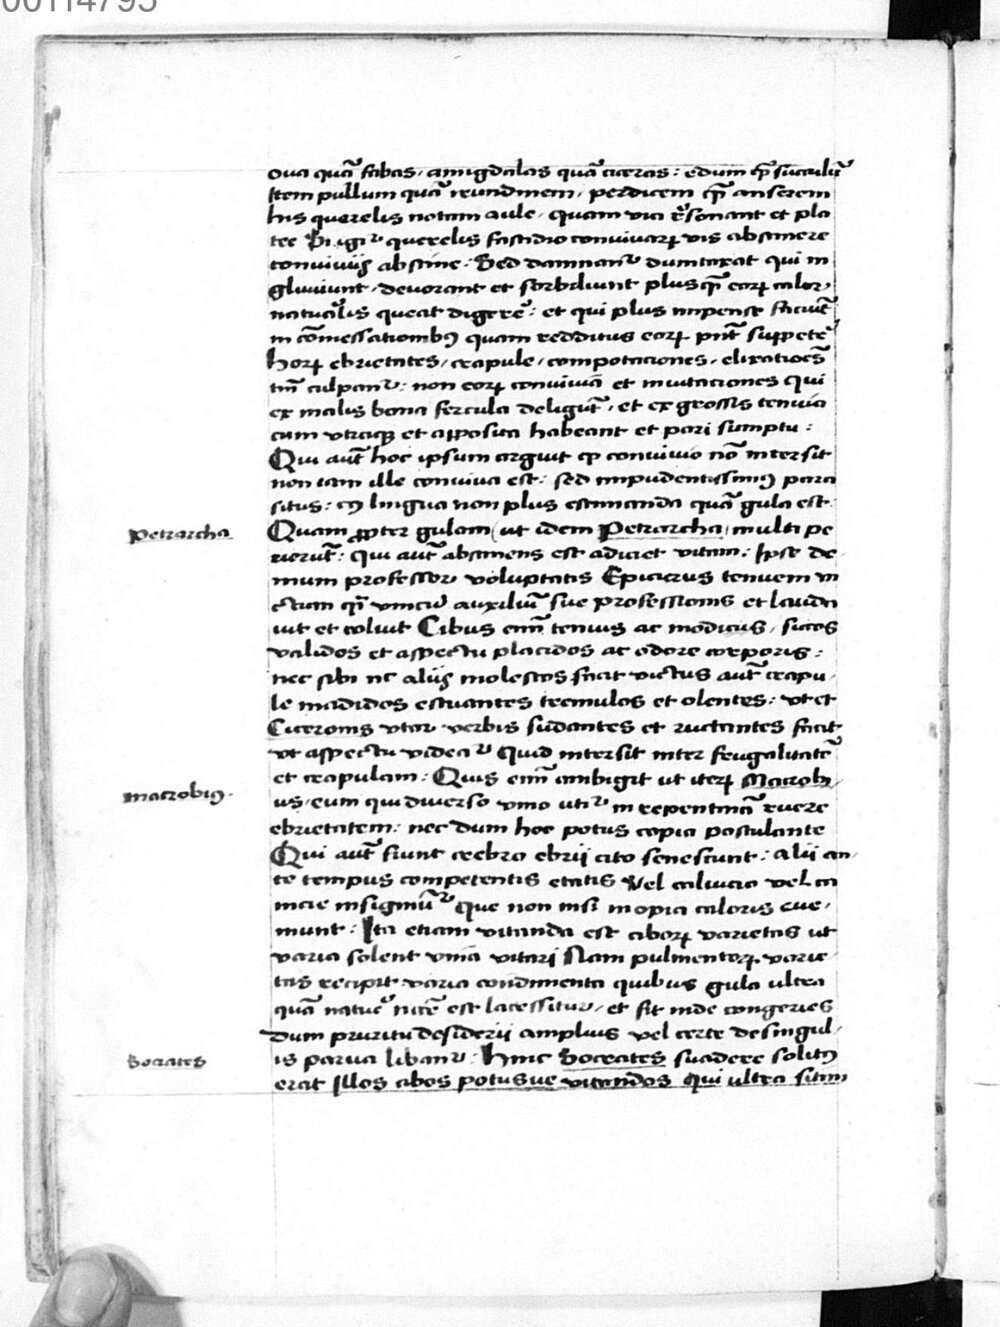 00114795
oua quā fabas, amigdalas quā ciceras: edum
Item pullum quā irundinem, perdicem qȝ anserem
his querelis notam aule, quam via rͣsonant et pla
tee querelis fastidio conviuarꝝ vis abstinere
conviuiis abstine. Sed damnanͬ dumtaxat qui in
gluviunt, devorant et sorbdiunt plusqȝ eorꝝ calor
naturalis queat digereͬ: et qui plus impense faciūt
in cōmessationibꝰ quam redditus eorꝝ pnͭt suppeteͬ
horꝝ ebrietates, crapule, compotaciones, elixatioēs
tm̄ culpanͬ: non eorꝝ convivia et invitaciones Qui
ex malis bona fercula deligūt, et ex grossis tenuia
cum vtraqꝫ et apposita habeant et pari sumptu:
Qui aūt hoc ipsum arguit ꝙ convivio nō intersit
non tam ille conviva est: sed impudentissimꝰ para
situs: cꝰ lingua non plus estimanda quā gula est
Petrarcha
Quam ꝓpter gulam (ut idem Petrarcha) multi pe
rierūt: Qui aūt abstinens est adiciet vitam: Ipse de
mum professor voluptatis Epicurus tenuem vi
ctum auxiliū sue professionis et lauda
uit et coluit Cibus enī tenuis ac modicus, succos
validos et aspectu placidos ac odore corporis:
nec sibi nc̄ aliis molestos facit victus aūt crapu
le madidos estuantes tremulos et olentes: vt et
Ciceronis vtar verbis sudantes et ructantes facit
vt aspectu videaͬ Quid intersit inter frugalitatē
et crapulam: Quis enī ambigit ut iterꝝ Macrobi
macrobiꝰ.
us, eum qui diverso vino utiͬ in repentinā ruere
ebrietatem: nec dum hoc potus copia postulante
Qui aūt fiunt crebro ebrii cito senescunt: Alii an
te tempus competentis etatis vel calvicio vel ca
nicie insigniūͬ Que non nisi inopia caloris eve
niunt: Ita etiam vitanda est ciborꝝ varietas ut
varia solent vina vitari Nam pulmentorꝝ varie
tas recipit varia condimenta quibus gula ultra
quā natuͬ est lacessitur, et fit inde congeries
dum pruritu desiderii amplius vel certe de singul
is parva libanͬ: Hinc Socrates suadere solitꝰ
Socrates
erat Illos cibos potusve vitandos Qui ultra sitim